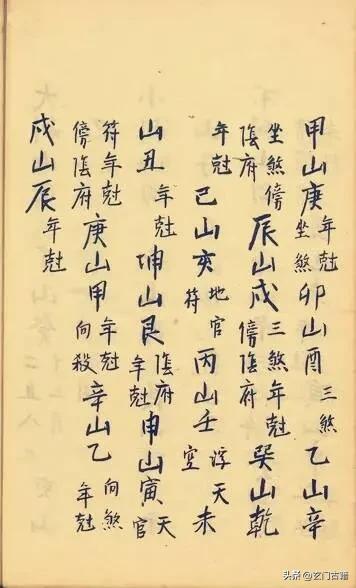 甲山庚年尅坐煞卯山酉三煞乙山辛
坐煞傍陰府辰山戌三煞年尅傍陰府巽山乾
年尅巳山亥地官符丙山壬浮天空未
山丑年尅坤山艮陰府年尅申山寅天官
符年尅傍陰府庚山甲年尅向殺辛山乙向煞年尅
戌山辰年尅
头条 @玄门古籍